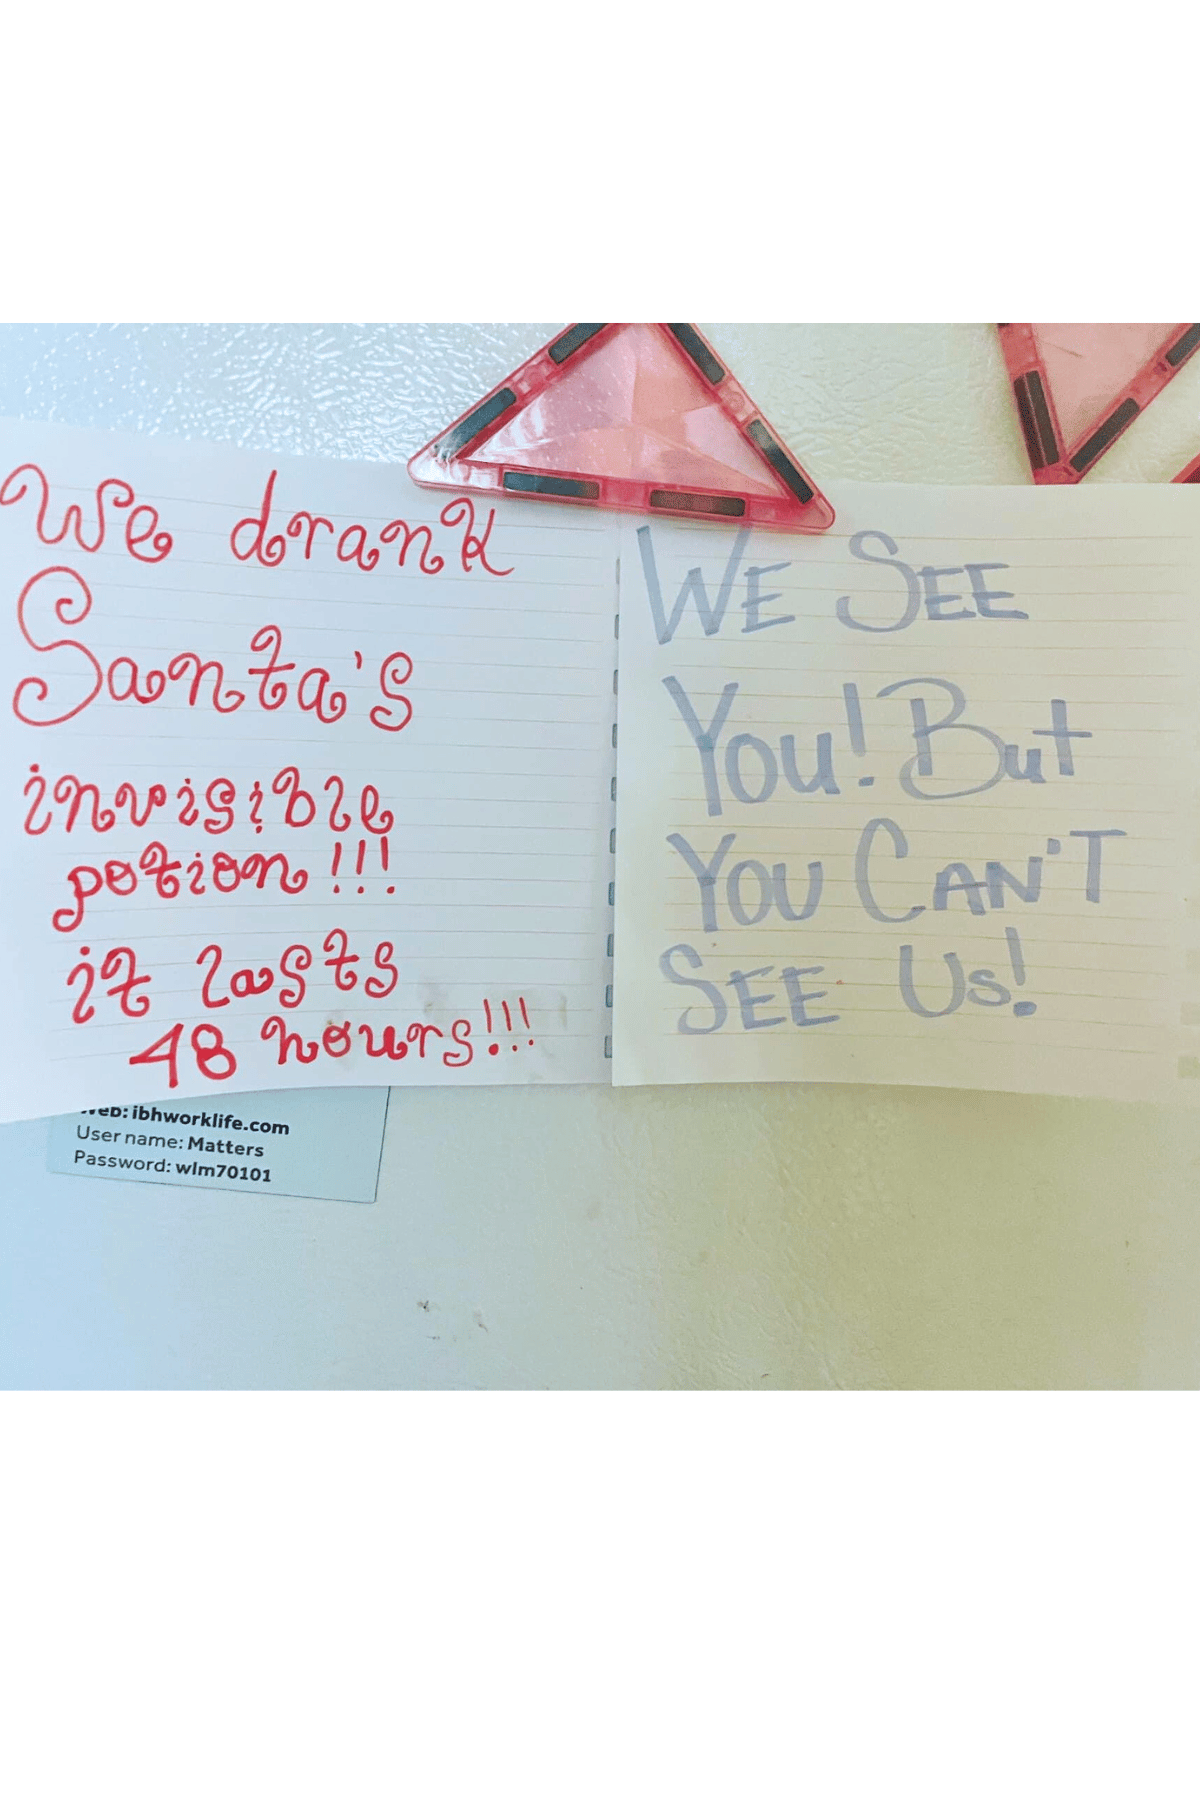 We drank
Santa's
invisible
potion!!!
it lasts
48 hours!!!
WE SEE
YOU! But
YOU CAN'T
SEE Us!
Web: ibhworklife.com
User name: Matters
Password: wlm70101